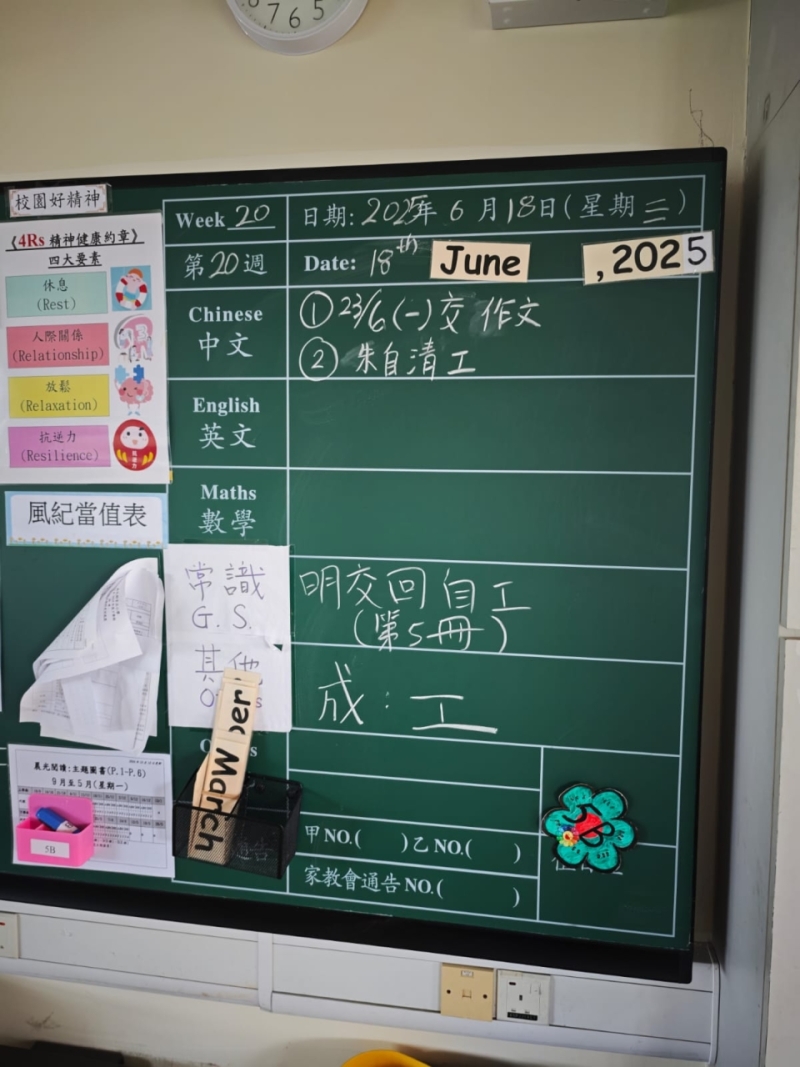 7 6 5
校園好精神
《4Rs 精神健康約章》
四大要素
休息
(Rest)
人際關係
(Relationship)
放鬆
(Relaxation)
抗逆力
(Resilience)
風紀當值表
晨光閱讀:主題圖書(P.1-P.6)
9月至5月(星期一)
5B
Week 20
日期: 2025年 6 月 18日 (星期三)
第20週
Date: 18th June , 2025
Chinese
中文
① 23/6 (一) 交 作文
② 朱自清工
English
英文
Maths
數學
常識
G. S.
明交回自工
(第5冊)
其他
成: 工
March
ber
通告
甲 NO.( )乙 NO.( )
家教會通告 NO.( )
5B